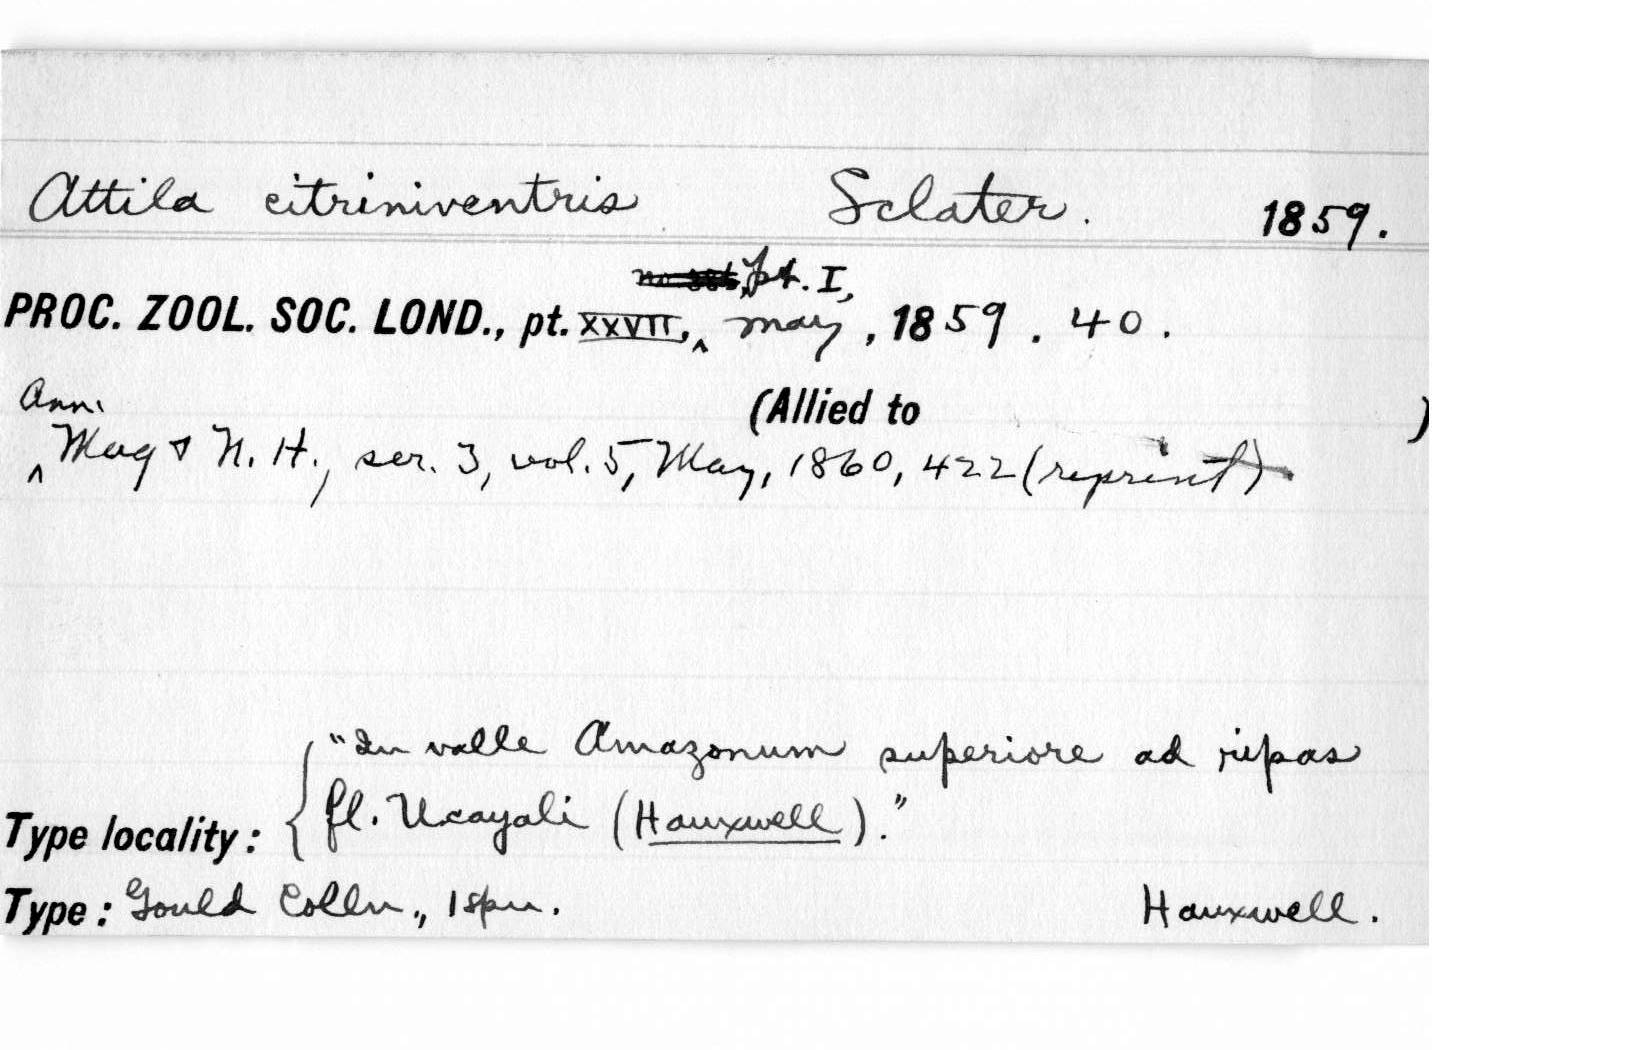 Attila citriniventris Sclater. 1859.
pt. I,
PROC. ZOOL. SOC. LOND., pt. XXVII, ^ May, 1859. 40.
Ann.
(Allied to )
^ Mag & N. H., ser. 3, vol. 5, May, 1860, 422 (reprint)
"In valle Amazonum superiore ad ripas
fl. Ucayali (Hauxwell)."
Type locality:
Type: Gould Colln., 1 spn. Hauxwell.